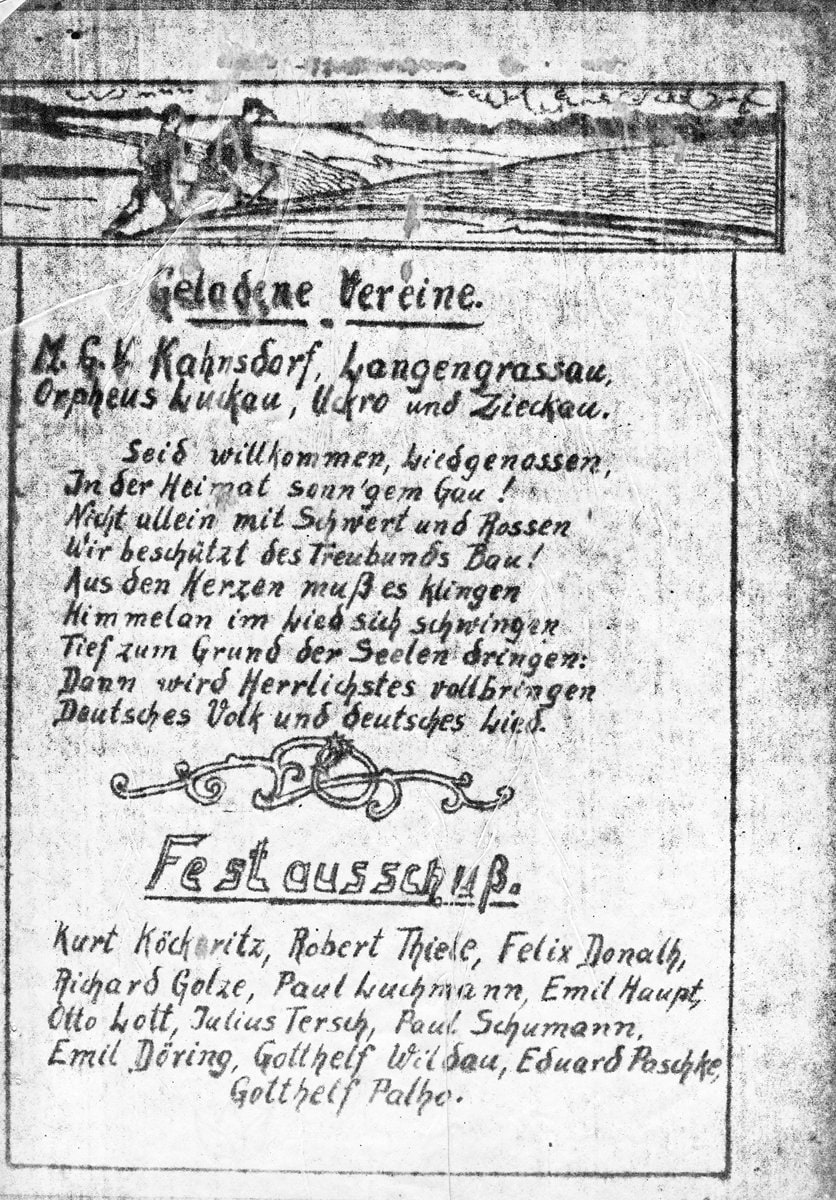 Geladene Vereine.
M. G. V. Kahnsdorf, Langengrassau,
Orpheus Luckau, Uckro und Zieckau.
Seid willkommen, Liedgenossen,
In der Heimat sonn'gem Gau!
Nicht allein mit Schwert und Rossen
Wir beschützt des Treubunds Bau!
Aus den Herzen muß es klingen
Himmelan im Lied sich schwingen
Tief zum Grund der Seelen dringen:
Dann wird Herrlichstes vollbringen
Deutsches Volk und deutsches Lied.
Festausschuß.
Kurt Köckeritz, Robert Thiele, Felix Donath,
Richard Golze, Paul Luchmann, Emil Haupt,
Otto Lott, Julius Tersch, Paul Schumann,
Emil Döring, Gotthelf Wildau, Eduard Paschke,
Gotthelf Palho.